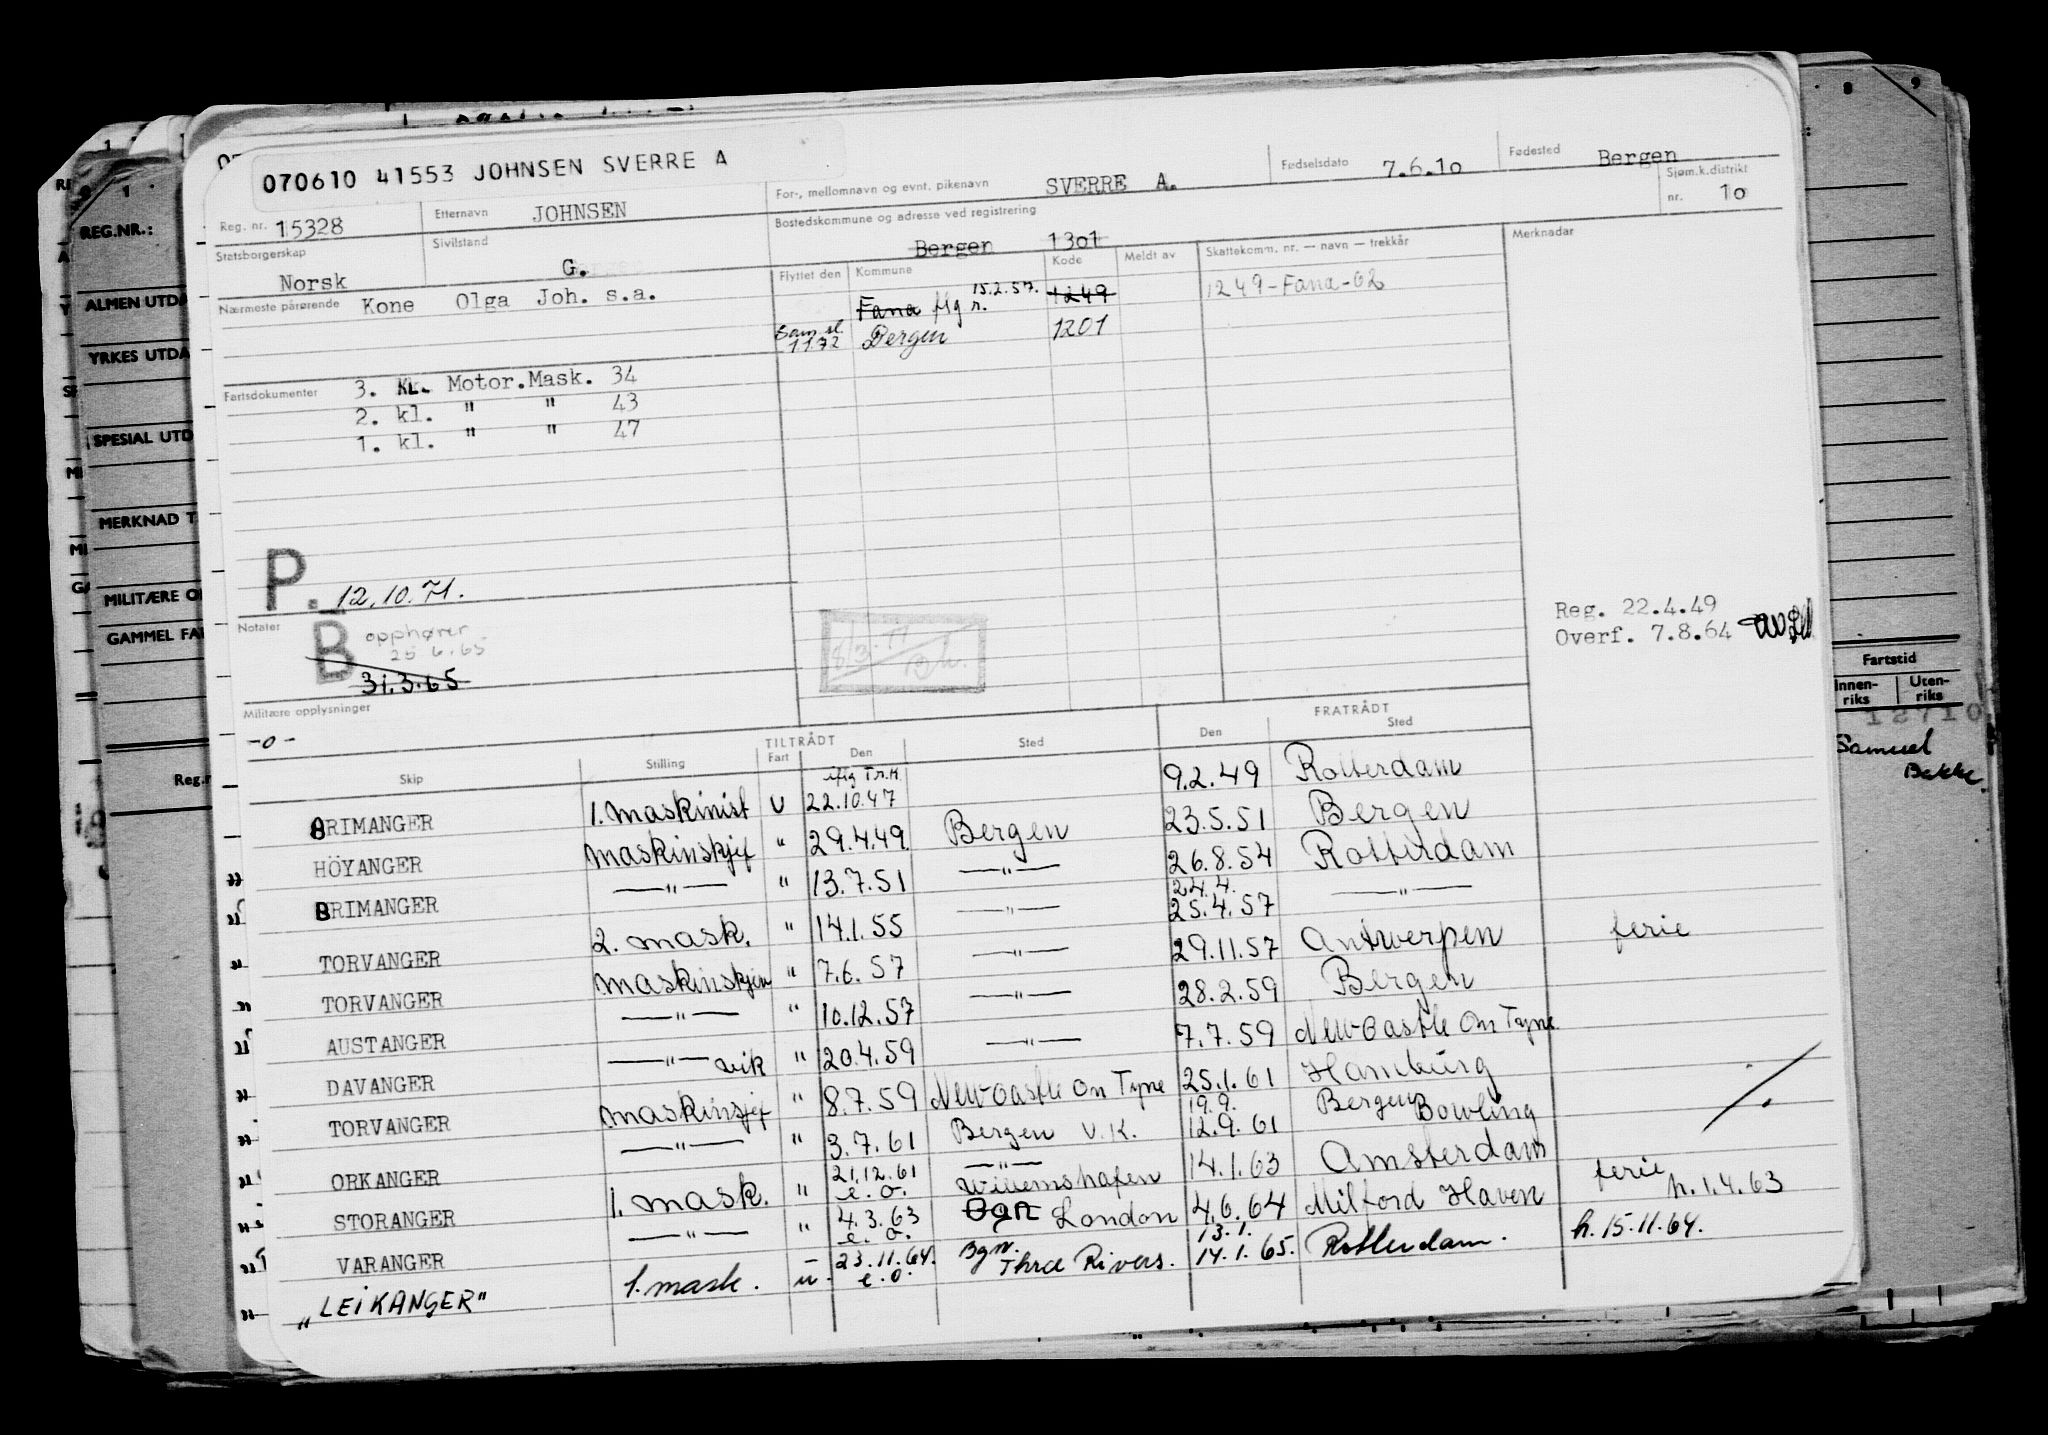 070610 41553 JOHNSEN SVERRE A
Reg. nr. 15328
Etternavn JOHNSEN
For-, mellomnavn og evnt. pikenavn SVERRE A.
Fødselsdato 7.6.1o
Fødested Bergen
Statsborgerskap Norsk
Sivilstand G.
Bostedskommune og adresse ved registrering Bergen 13o1
Sjøm.k.distrikt nr. 1o
Nærmeste pårørende Kone Olga Joh. s.a.
Flyttet den Kommune Kode Meldt av Skattekomm. nr. — navn — trekkår Merknadar
Fana flg r. 15.2.57. 1249 1249-Fana-02
Sam.sl. 1172 Bergen 1201
Fartsdokumenter 3. KL. Motor.Mask. 34
2. kl. " " 43
1. kl. " " 47
P. 12.10.71.
Notater
B opphører 25 6.65
31.3.65
Reg. 22.4.49
Overf. 7.8.64
Militære opplysninger
-o-
TILTRÅDT FRATRÅDT
Skip Stilling Fart Den Sted Den Sted
BRIMANGER 1. maskinist U iflg Tr.K. 22.10.47 9.2.49 Rotterdam
HÖYANGER maskinskjef " 29.4.49 Bergen 23.5.51 Bergen
BRIMANGER —"— " 13.7.51 —"— 26.8.54 Rotterdam
TORVANGER 2. mask. " 14.1.55 —"— 24.4. 25.4.57 —"—
TORVANGER maskinskjen " 7.6.57 —"— 29.11.57 Antwerpen ferie
AUSTANGER —"— " 10.12.57 —"— 28.2.59 Bergen
DAVANGER —"— vik " 20.4.59 —"— 7.7.59 NewCastle On Tyne
TORVANGER maskinsjef " 8.7.59 NewCastle On Tyne 25.1.61 Hamburg
ORKANGER —"— " 3.7.61 Bergen V.K. 19.9. 12.9.61 Bergen Bowling
STORANGER 1. mask. " 21.12.61 e.o. —"— Willemshafen 14.1.63 Amsterdam
VARANGER —"— " 4.3.63 e.o. Bgn London 4.6.64 Milford Haven ferie h.1.4.63
"LEIKANGER" 1. mask. u. 23.11.64. e.o. Bgn. Three Rivers. 13.1. 14.1.65. Rotterdam. h.15.11.64.
REG.NR.:
ALMEN UTDA
YRKES UTDA
SPESIAL UTD
MERKNAD T
MILITÆRE O
GAMMEL FA
Reg.n
1
8 9
Fartstid
Innen-riks Uten-riks
12710
Samuel
Bakke.